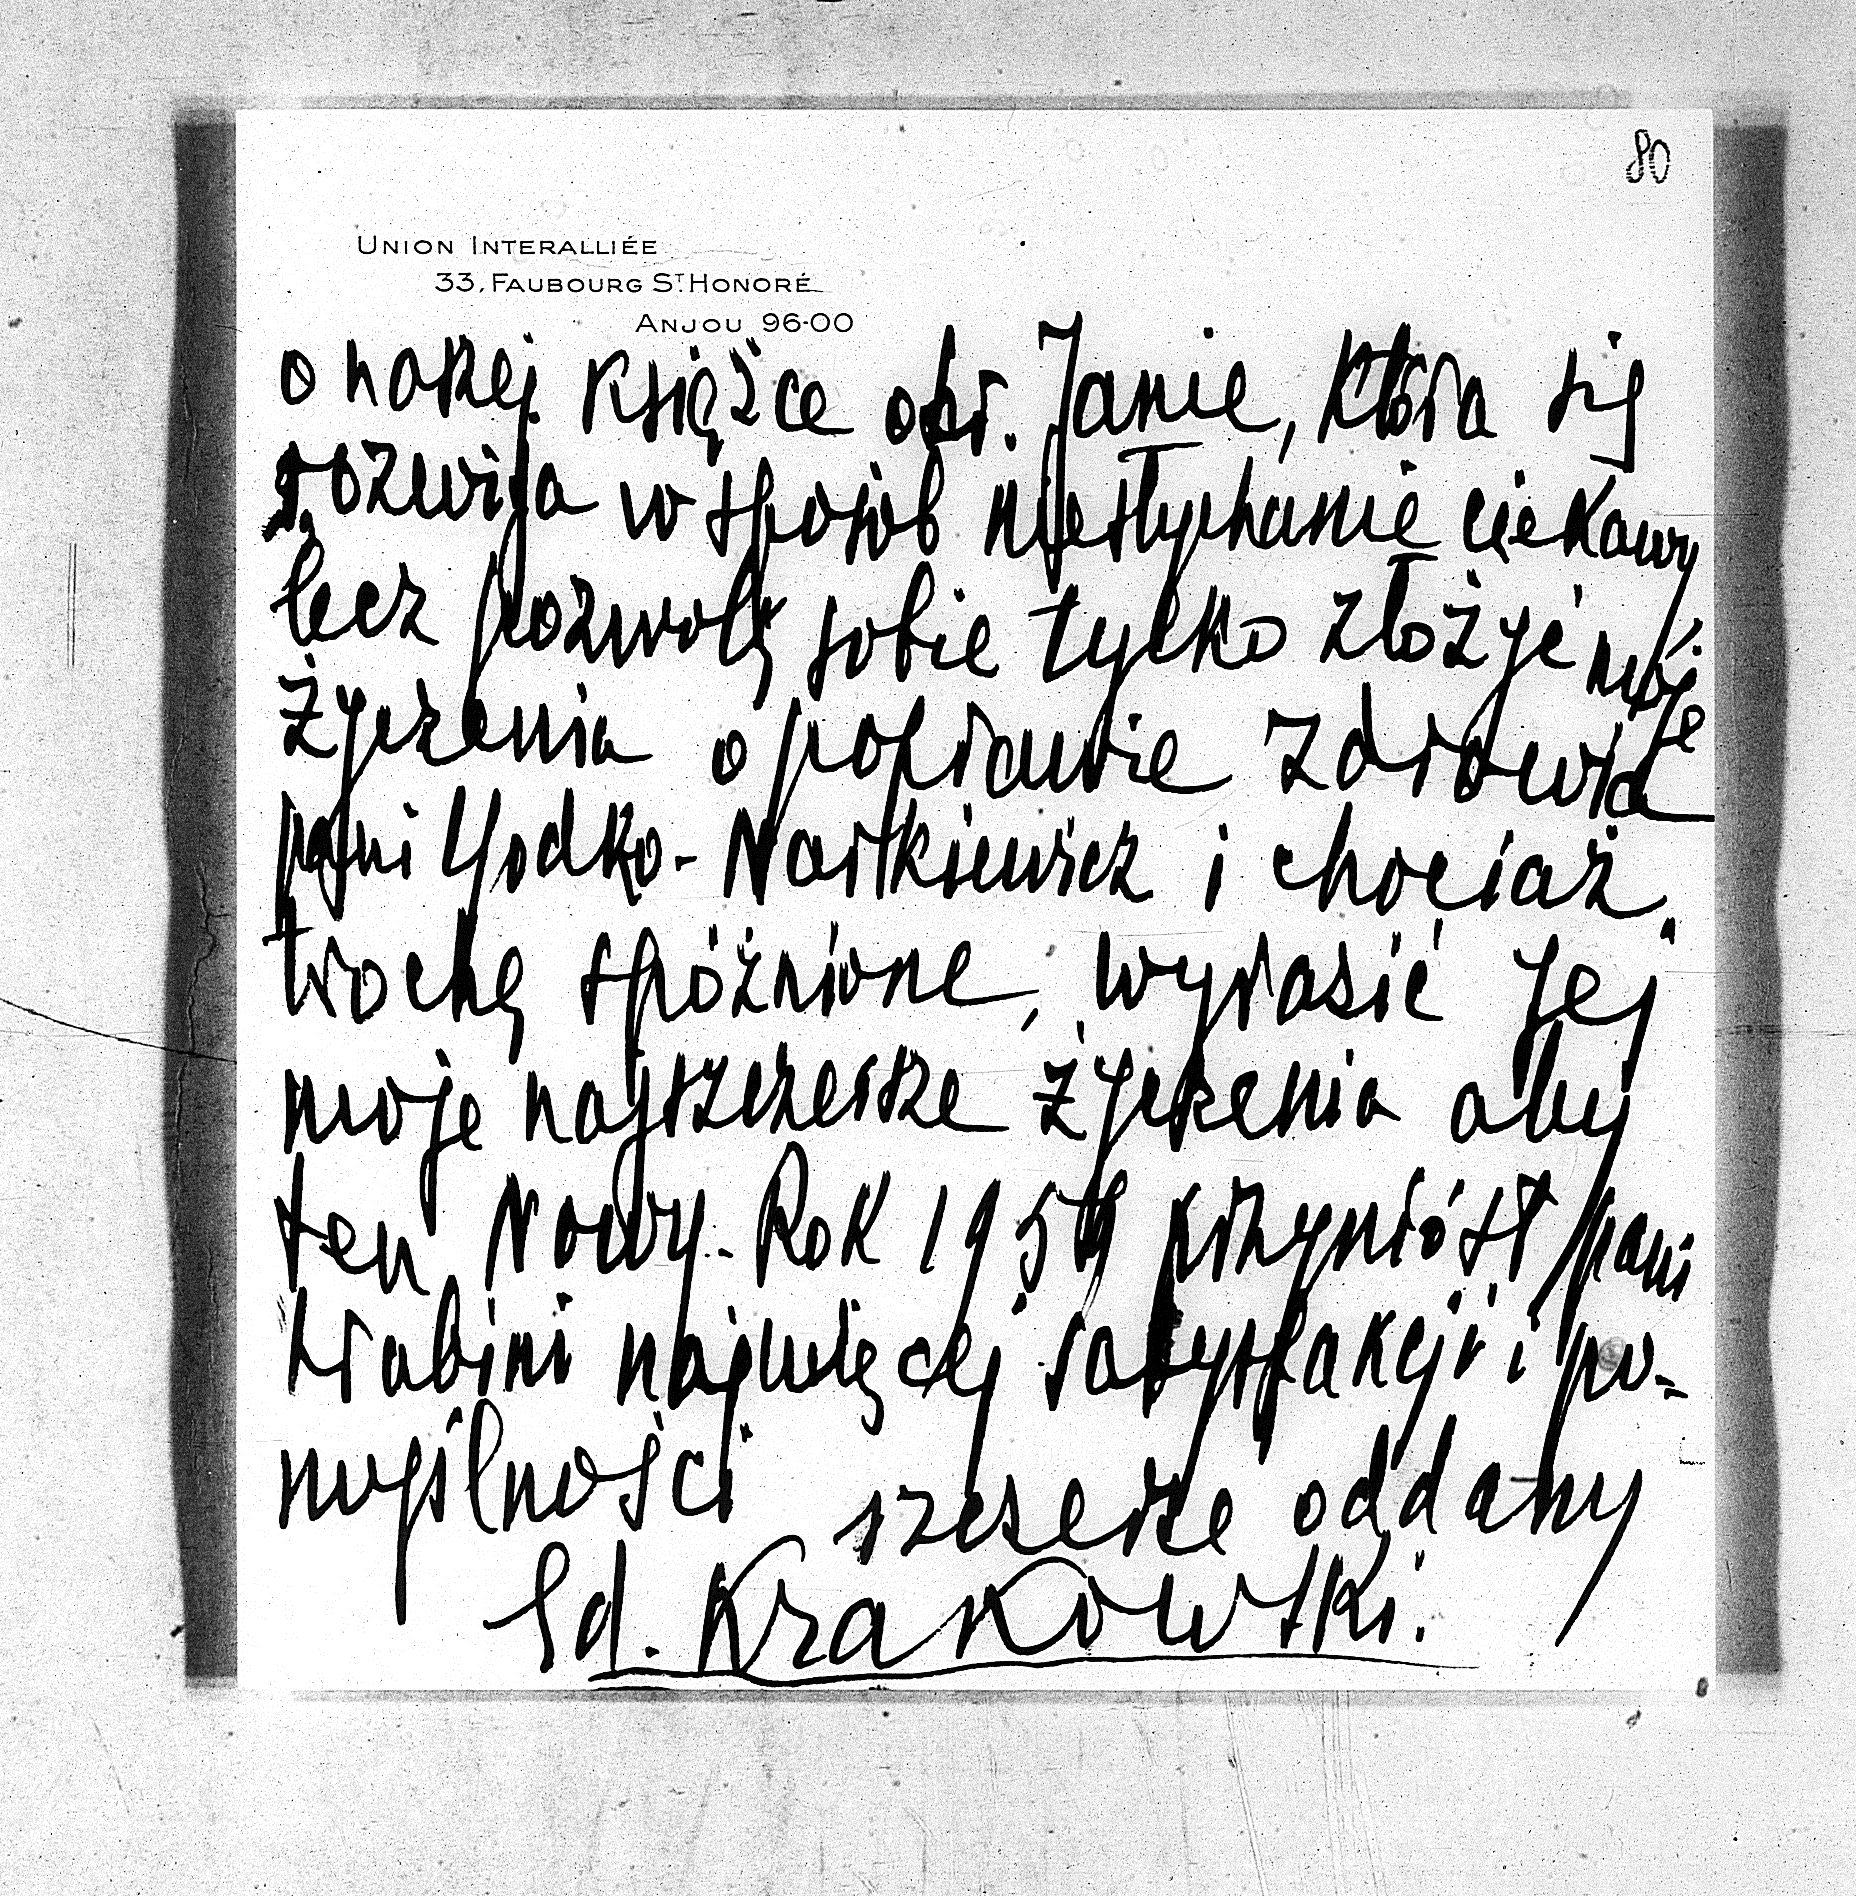 80
UNION INTERALLIÉE
33, FAUBOURG ST. HONORÉ
ANJOU 96-00
o naszej książce o hr. Janie, która się
rozwija w sposób niesłychanie ciekawy
lecz pozwolę sobie tylko złożyć moje
życzenia o poprawie zdrowia
pani Yodko-Narkiewicz i chociaż
trochę spóźnione, wyrazić jej
moje najszczersze życzenia aby
ten Nowy-Rok 1959 przyniósł pani
hrabini najwięcej satysfakcji i po-
myślności
szczerze oddany
Ed. Krakowski.